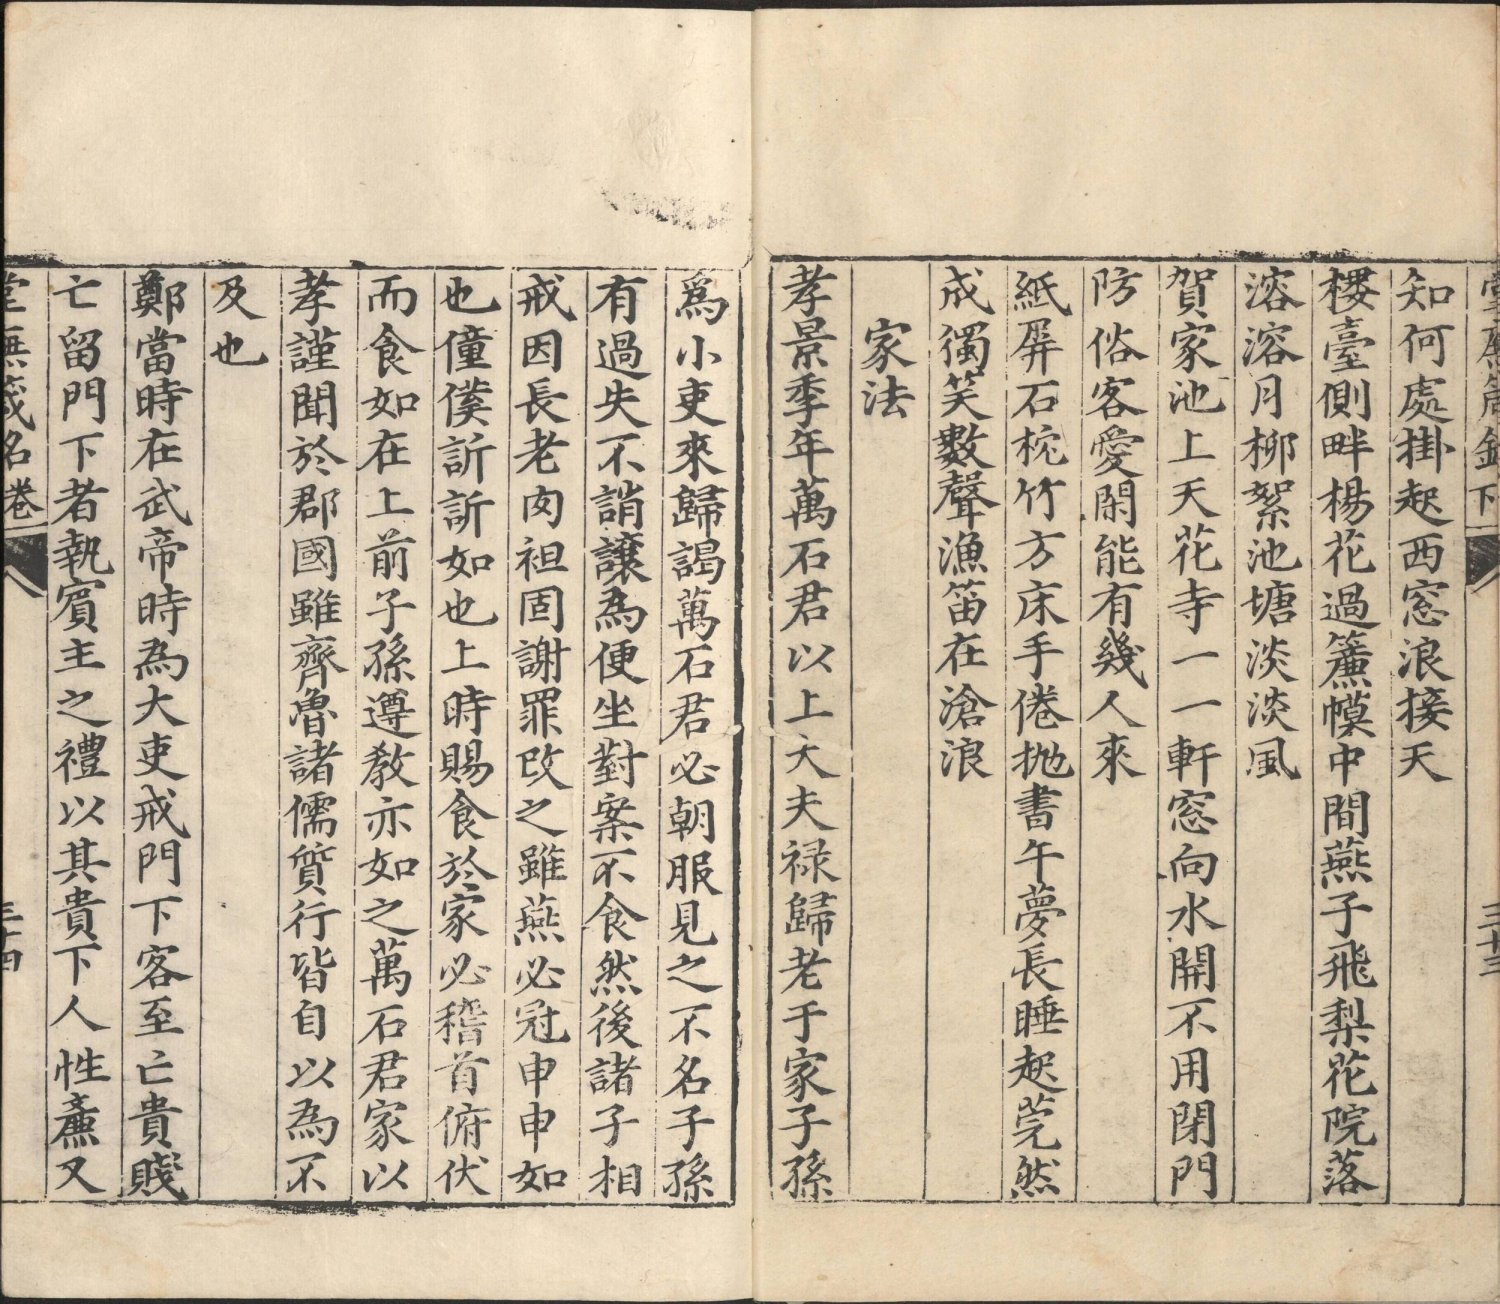 知何處掛起西窓浪接天
樓臺側畔楊花過簾幙中間燕子飛梨花院落
溶溶月柳絮池塘淡淡風
賀家池上天花寺一一軒窓向水開不用閉門
防俗客愛閑能有幾人來
紙屏石枕竹方床手倦拋書午夢長睡起莞然
成獨笑數聲漁笛在滄浪
家法
孝景季年萬石君以上大夫禄歸老于家子孫
為小吏來歸謁萬石君必朝服見之不名子孫
有過失不誚讓為便坐對案不食然後諸子相
戒因長老肉袒固謝罪改之雖燕必冠申申如
也僮僕訢訢如也上時賜食於家必稽首俯伏
而食如在上前子孫遵教亦如之萬石君家以
孝謹聞於郡國雖齊魯諸儒質行皆自以為不
及也
鄭當時在武帝時為大吏戒門下客至亡貴賤
亡留門下者執賓主之禮以其貴下人性廉又
三十四